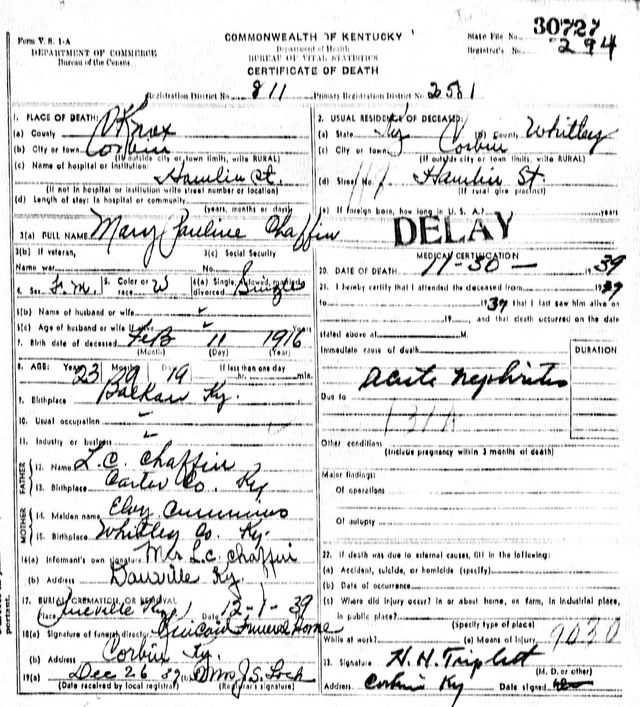 Form V. S. 1-A
DEPARTMENT OF COMMERCE
Bureau of the Census
COMMONWEALTH OF KENTUCKY
Department of Health
BUREAU OF VITAL STATISTICS
CERTIFICATE OF DEATH
State File No. 30727
Registrar's No. 294
Registration District No. 811 Primary Registration District No. 2581
1. PLACE OF DEATH:
(a) County Knox
(b) City or town Corbin
(If outside city or town limits, write RURAL)
(c) Name of hospital or institution:
Hamlin St.
(If not in hospital or institution write street number or location)
(d) Length of stay: In hospital or community
(years, months or days)
2. USUAL RESIDENCE OF DECEASED:
(a) State Ky (b) County Whitley
(c) City or town Corbin
(If outside city or town limits, write RURAL)
(d) Street No. Hamlin St.
(If rural give precinct)
(e) If foreign born, how long in U. S. A.? years
DELAY
3(a) FULL NAME Mary Pauline Chaffin
3(b) If veteran,
Name war
3(c) Social Security
No.
4. Sex F.M. 5. Color or race W 6(a) Single, widowed, married, divorced Single
6(b) Name of husband or wife
6(c) Age of husband or wife if alive Years
7. Birth date of deceased Feb 11 1916
(Month) (Day) (Year)
8. AGE: Years 23 Months 9 Days 19 If less than one day
hr. min.
9. Birthplace Balkan Ky.
10. Usual occupation
11. Industry or business
FATHER
12. Name L. C. Chaffin
13. Birthplace Carter Co. Ky
MOTHER
14. Maiden name Elvy Cummins
15. Birthplace Whitley Co. Ky.
16(a) Informant's own signature Mr. L.C. Chaffin
(b) Address Danville Ky.
17. BURIAL, CREMATION, OR REMOVAL
Place Pineville Ky Date 12-1-39
18(a) Signature of funeral director Funeral Home
(b) Address Corbin Ky.
19(a) Dec 26 39 (b) Mrs J. S. Lock
(Date received by local registrar) (Registrar's signature)
MEDICAL CERTIFICATION
20. DATE OF DEATH 11-30- 1939
21. I hereby certify that I attended the deceased from 1939
to 1939 that I last saw him alive on
19 , and that death occurred on the date
stated above at M.
Immediate cause of death
DURATION
Acute nephritis
Due to
131A
Other conditions
(Include pregnancy within 3 months of death)
Major findings:
Of operations
Of autopsy
22. If death was due to external causes, fill in the following:
(a) Accident, suicide, or homicide (specify)
(b) Date of occurrence
(c) Where did injury occur? In or about home, on farm, in industrial place,
in public place?
(Specify type of place)
While at work? (e) Means of Injury 9030
23. Signature H. H. Triplett
(M. D. or other)
Address Corbin Ky Date signed
portant.